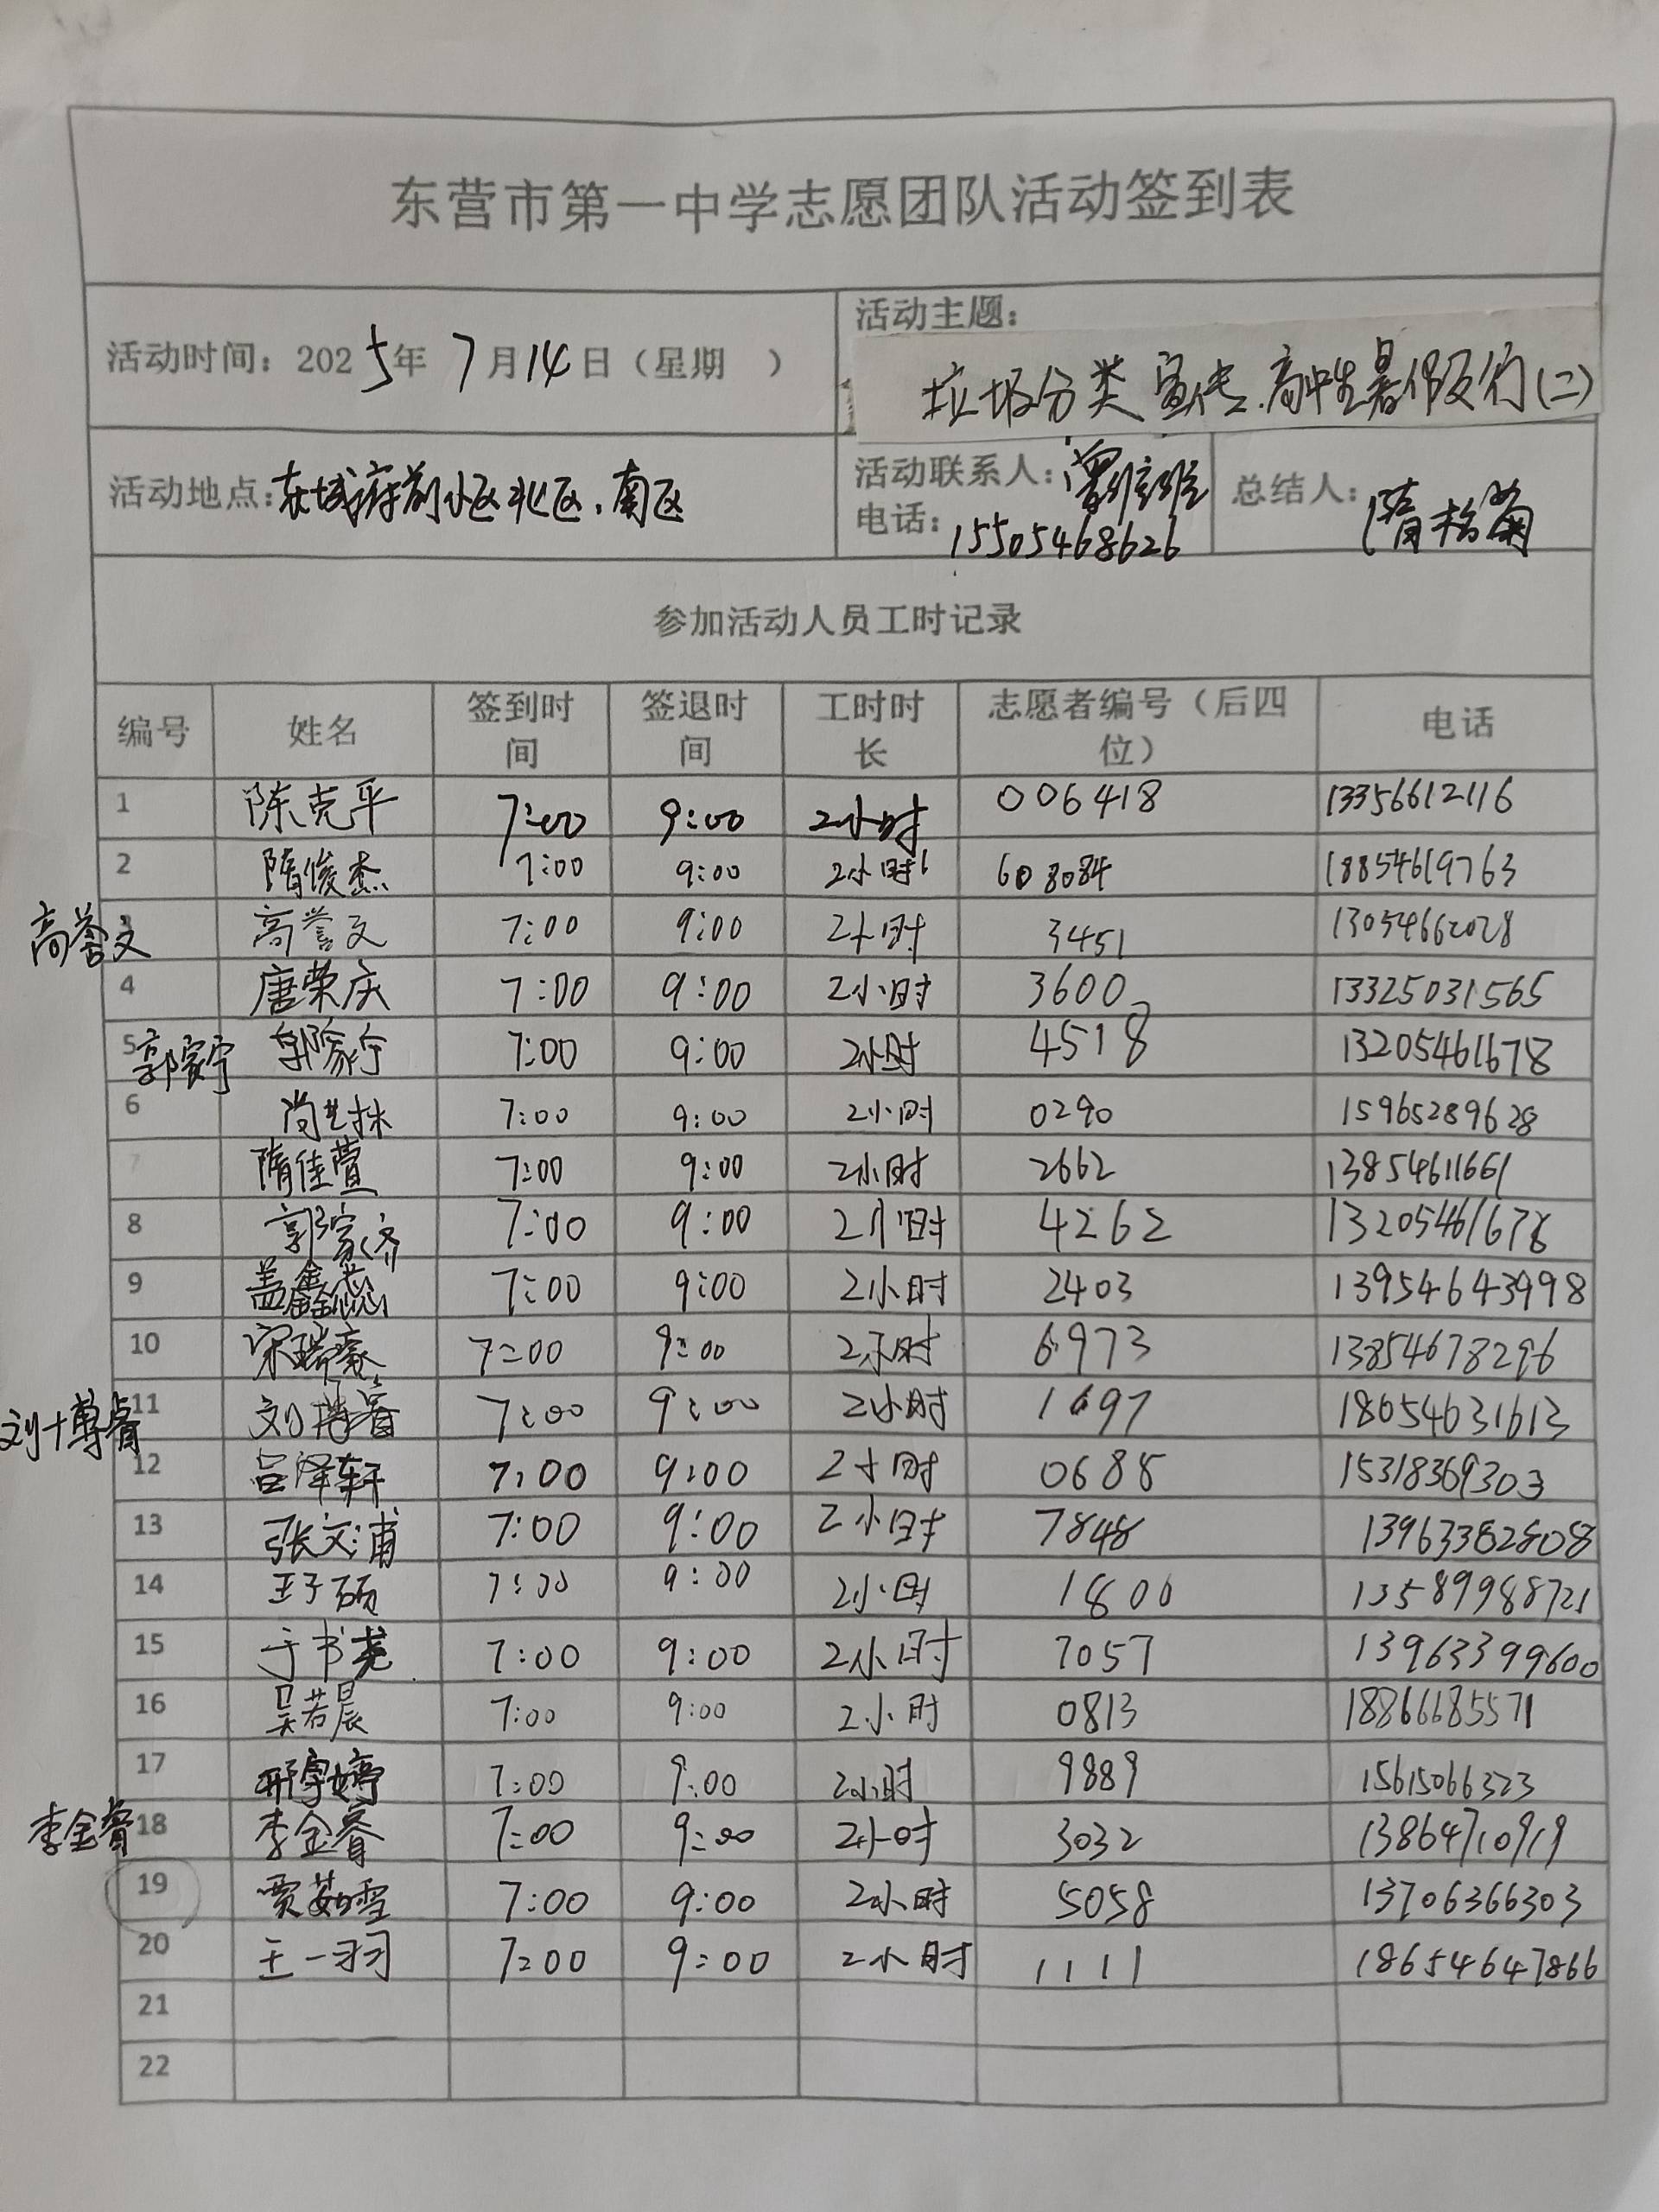 东营市第一中学志愿团队活动签到表
活动时间：2025年 7月14日（星期　） 活动主题：
垃圾分类宣传.高中生暑假反行(二)
活动地点：东城府前小区北区、南区 活动联系人： 总结人：隋松菊
电话：15505468626
参加活动人员工时记录
编号 姓名 签到时间 签退时间 工时时长 志愿者编号（后四位） 电话
1 陈克平 7:00 9:00 2小时 006418 13356612116
2 隋俊杰 7:00 9:00 2小时 608084 18854619763
高誉文 3 高誉文 7:00 9:00 2小时 3451 13054662028
4 唐荣庆 7:00 9:00 2小时 3600 13325031565
5 郭家宁 郭家宁 7:00 9:00 2小时 4518 13205461678
6 尚艺林 7:00 9:00 2小时 0290 15965289628
7 隋佳萱 7:00 9:00 2小时 2662 13854611661
8 郭家齐 7:00 9:00 2小时 4262 13205461678
9 盖鑫蕊 7:00 9:00 2小时 2403 13954643998
10 宋瑞豪 7:00 9:00 2小时 6973 13854678296
刘博睿 11 刘博睿 7:00 9:00 2小时 1697 18654631613
12 吕泽轩 7:00 9:00 2小时 0688 15318369303
13 张文浦 7:00 9:00 2小时 7848 13963382808
14 王子硕 7:00 9:00 2小时 1800 13589988721
15 于书尧 7:00 9:00 2小时 7057 13963399600
16 吴若晨 7:00 9:00 2小时 0813 18866685571
17 邢宇婷 7:00 9:00 2小时 9889 15615066323
李金睿 18 李金睿 7:00 9:00 2小时 3032 13864710919
19 贾茹雪 7:00 9:00 2小时 5058 13706366303
20 王一羽 7:00 9:00 2小时 1111 18654647866
21
22